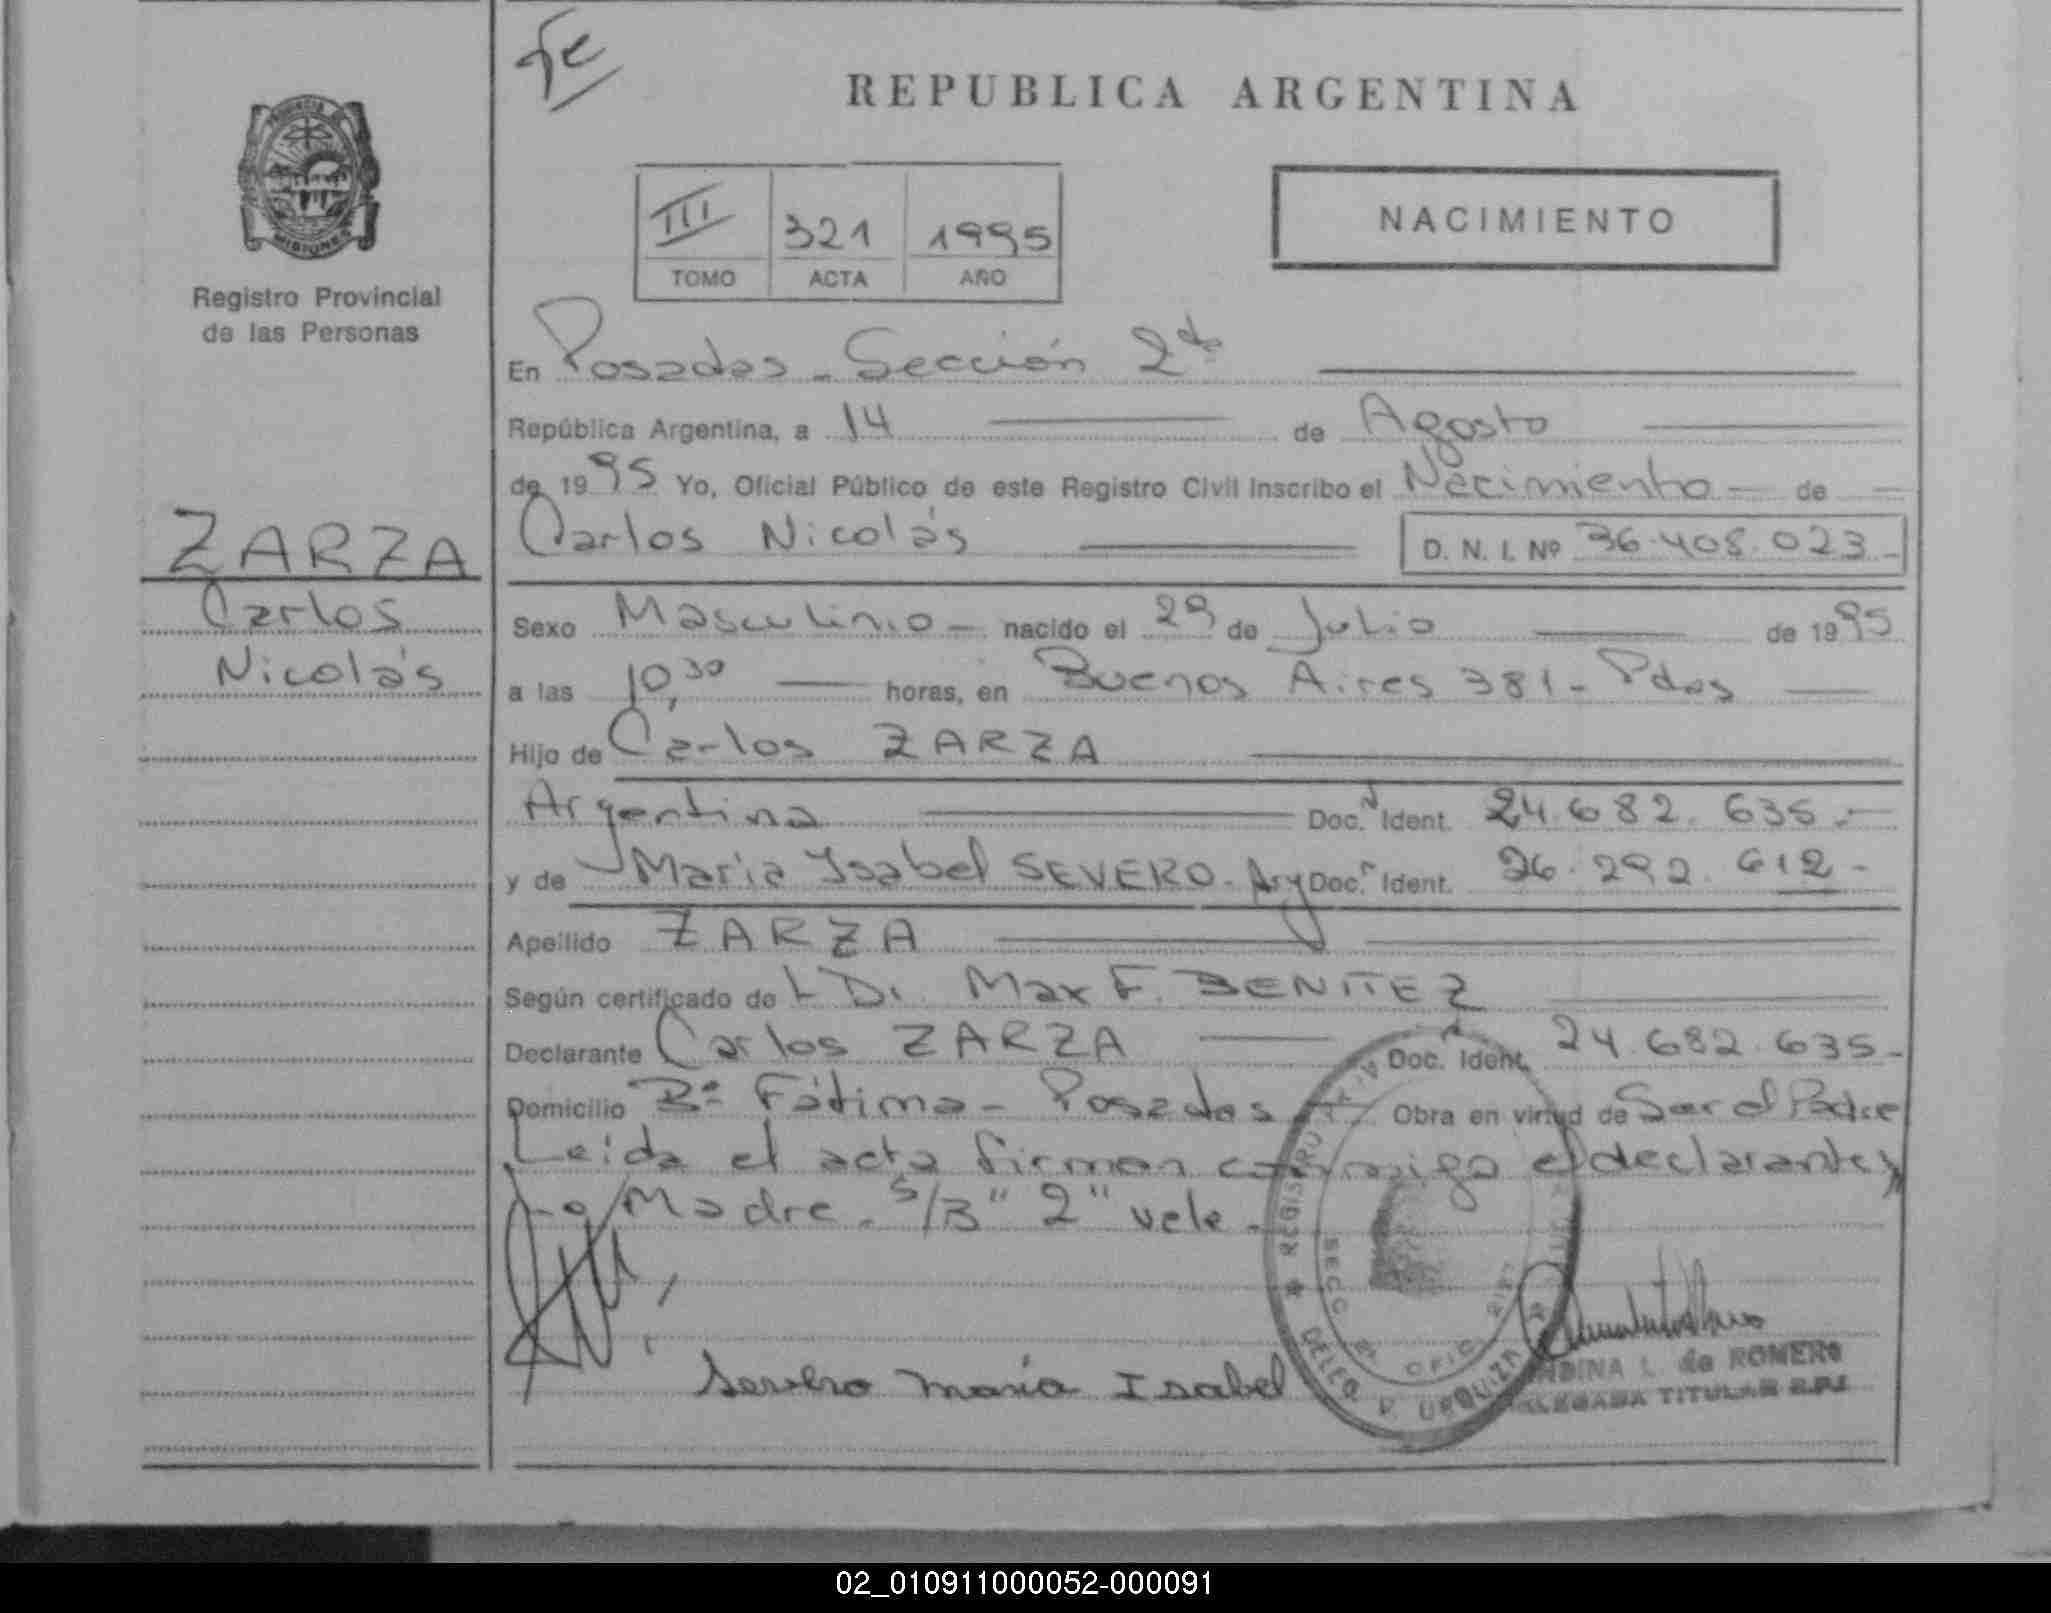 REPUBLICA ARGENTINA
PROVINCIA DE MISIONES
Registro Provincial
de las Personas
III 321 1995
TOMO ACTA AÑO
NACIMIENTO
En Posadas - Sección 2da
República Argentina, a 14 de Agosto
de 1995 Yo, Oficial Público de este Registro Civil Inscribo el Nacimiento - de
Carlos Nicolás D. N. I. Nº 36.408.023 -
ZARZA
Carlos
Nicolás
Sexo Masculinio - nacido el 29 de Julio de 1995
a las 10,30 horas, en Buenos Aires 381 - Pdas
Hijo de Carlos ZARZA
Argentina Doc. N Ident. 24.682.635.-
y de Maria Ysabel SEVERO. Arg Doc. Ident. 26.292.612 -
Apellido ZARZA
Según certificado de Max F. BENITEZ
Declarante Carlos ZARZA Doc. Ident. 24.682.635 -
Domicilio Bº Fátima - Posadas Obra en virtud de Ser el Padre
Leida el acta firman conmigo el declarante y
La Madre. S/B "2" vale.
Severo María Isabel
REGISTRO
DELEG. URQUIZA
SECC. OFIC.
L. de ROMERO
DELEGADA TITULAR
02_010911000052-000091